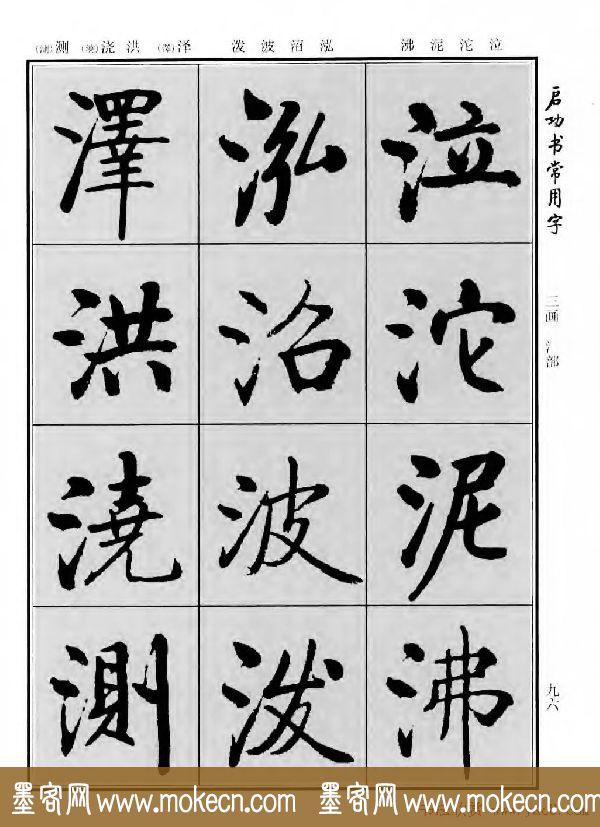 启功书常用字
三画 氵部
九六
泣沱泥沸
泓沼波泼
泽(澤)洪浇(澆)测(測)
泣沱泥沸
泓沼波泼
澤洪澆測
墨客网 www.mokecn.com 墨客网 www.mokecn.com